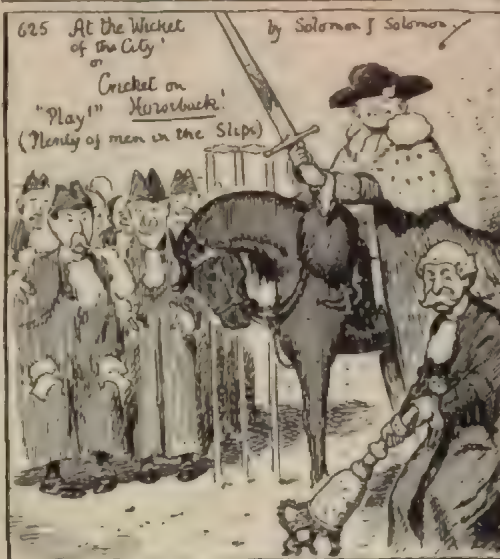 625 At the Wicket
of the City'
or
Cricket on
"Play!" Horseback!
(Plenty of men in the Slips)
by Solomon J Solomon